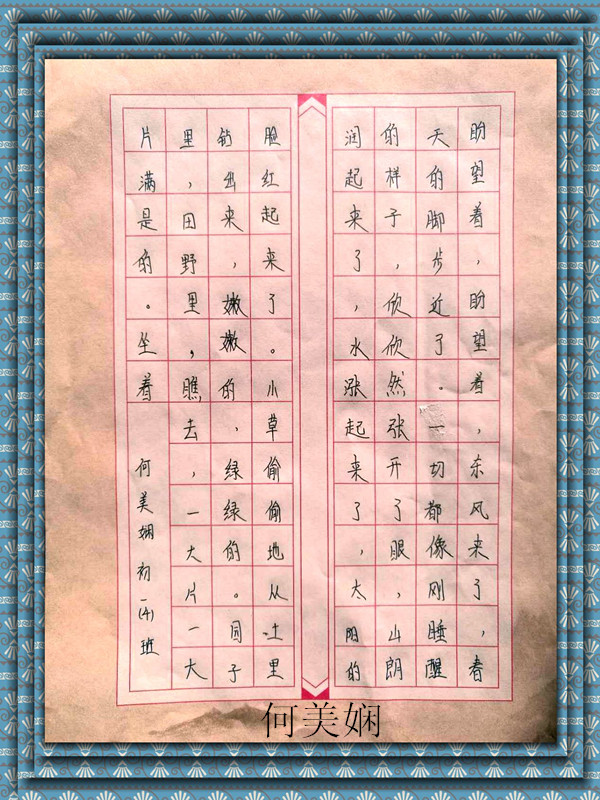 盼望着，盼望着，东风来了，春
天的脚步近了。一切都像刚睡醒
的样子，欣欣然张开了眼，山朗
润起来了，水涨起来了，太阳的
脸红起来了。小草偷偷地从土里
钻出来，嫩嫩的，绿绿的。园子
里，田野里，瞧去，一大片一大
片满是的。坐着
何美娴 初一(4)班
何美娴